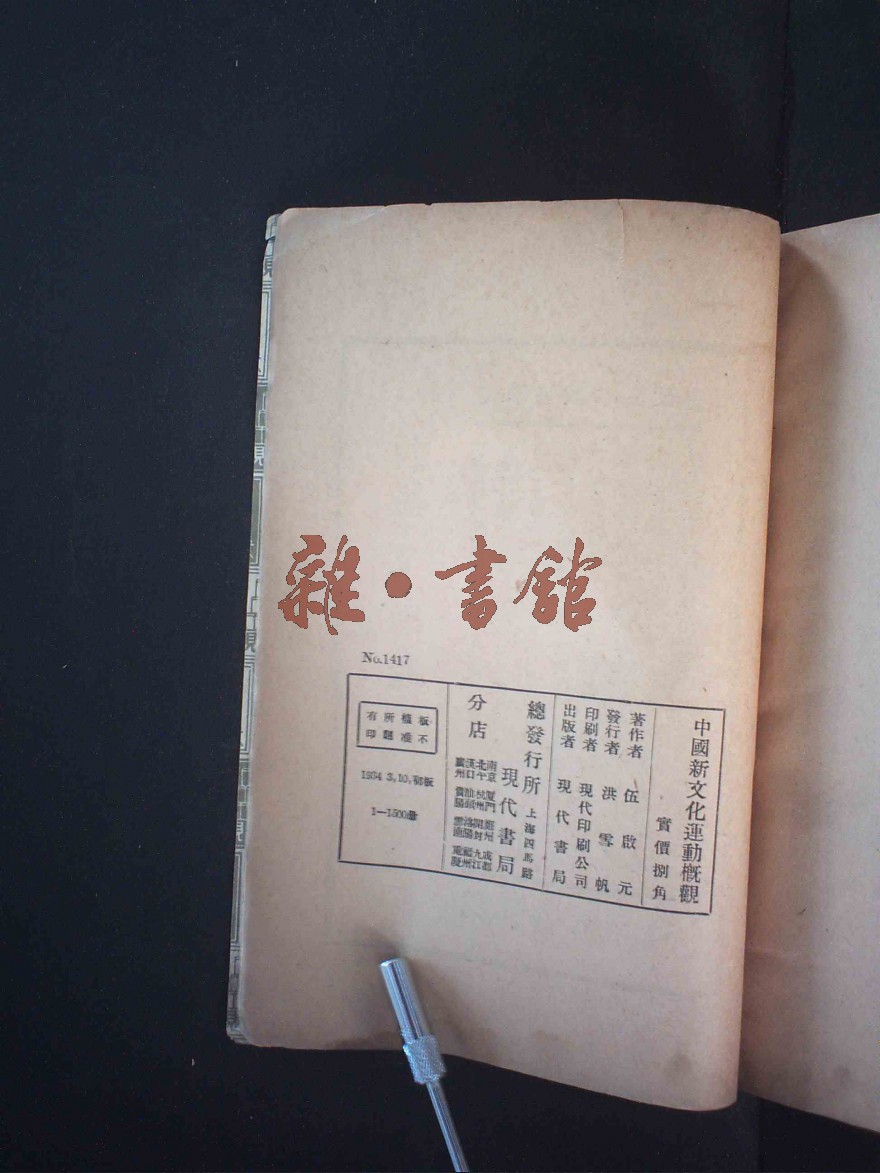 雜·書館
No.1417
中國新文化運動概觀
實價捌角
著作者 伍啟元
發行者 洪雪帆
印刷者 現代印刷公司
出版者 現代書局
總發行所 上海四馬路
現代書局
分店
南京 廈門 鄭州 成都
北平 杭州 開封 九江
漢口 汕頭 洛陽 福州
貴陽 雲南 重慶
板權所有
不准翻印
1934.3,10,初版
1—1500册